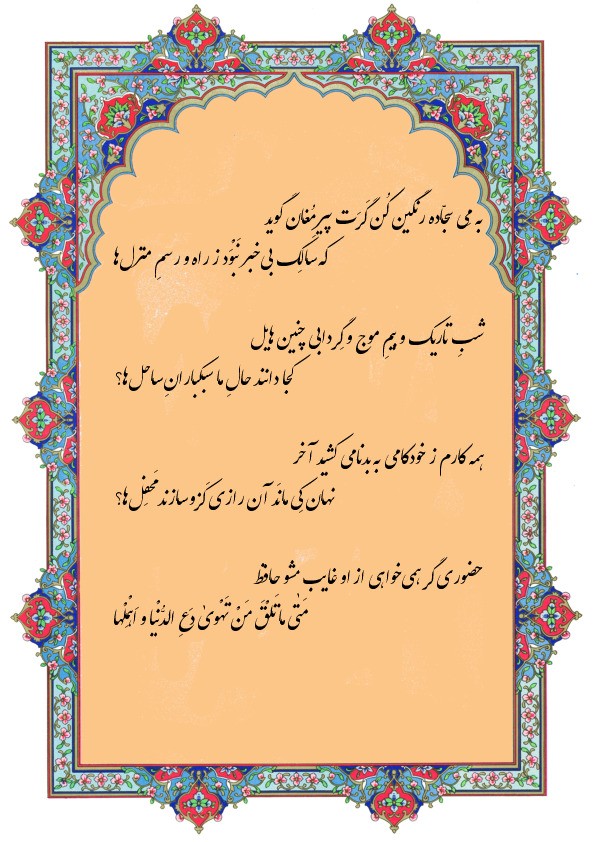 به مِی سجّاده رنگین کُن گَرَت پیرِ مُغان گوید
که سالِک بی‌خبر نَبْوَد ز راه و رسمِ منزل‌ها
شبِ تاریک و بیمِ موج و گِردابی چنین هایل
کجا دانند حالِ ما سبکبارانِ ساحل‌ها؟
همه کارم ز خودکامی به بدنامی کشید آخر
نهان کِی مانَد آن رازی کَزو سازند مَحفِل‌ها؟
حضوری گر همی‌خواهی از او غایب مشو حافظ
مَتیٰ ما تَلْقَ مَنْ تَهْویٰ دَعِ الدُّنْیا و اَهْمِلْها